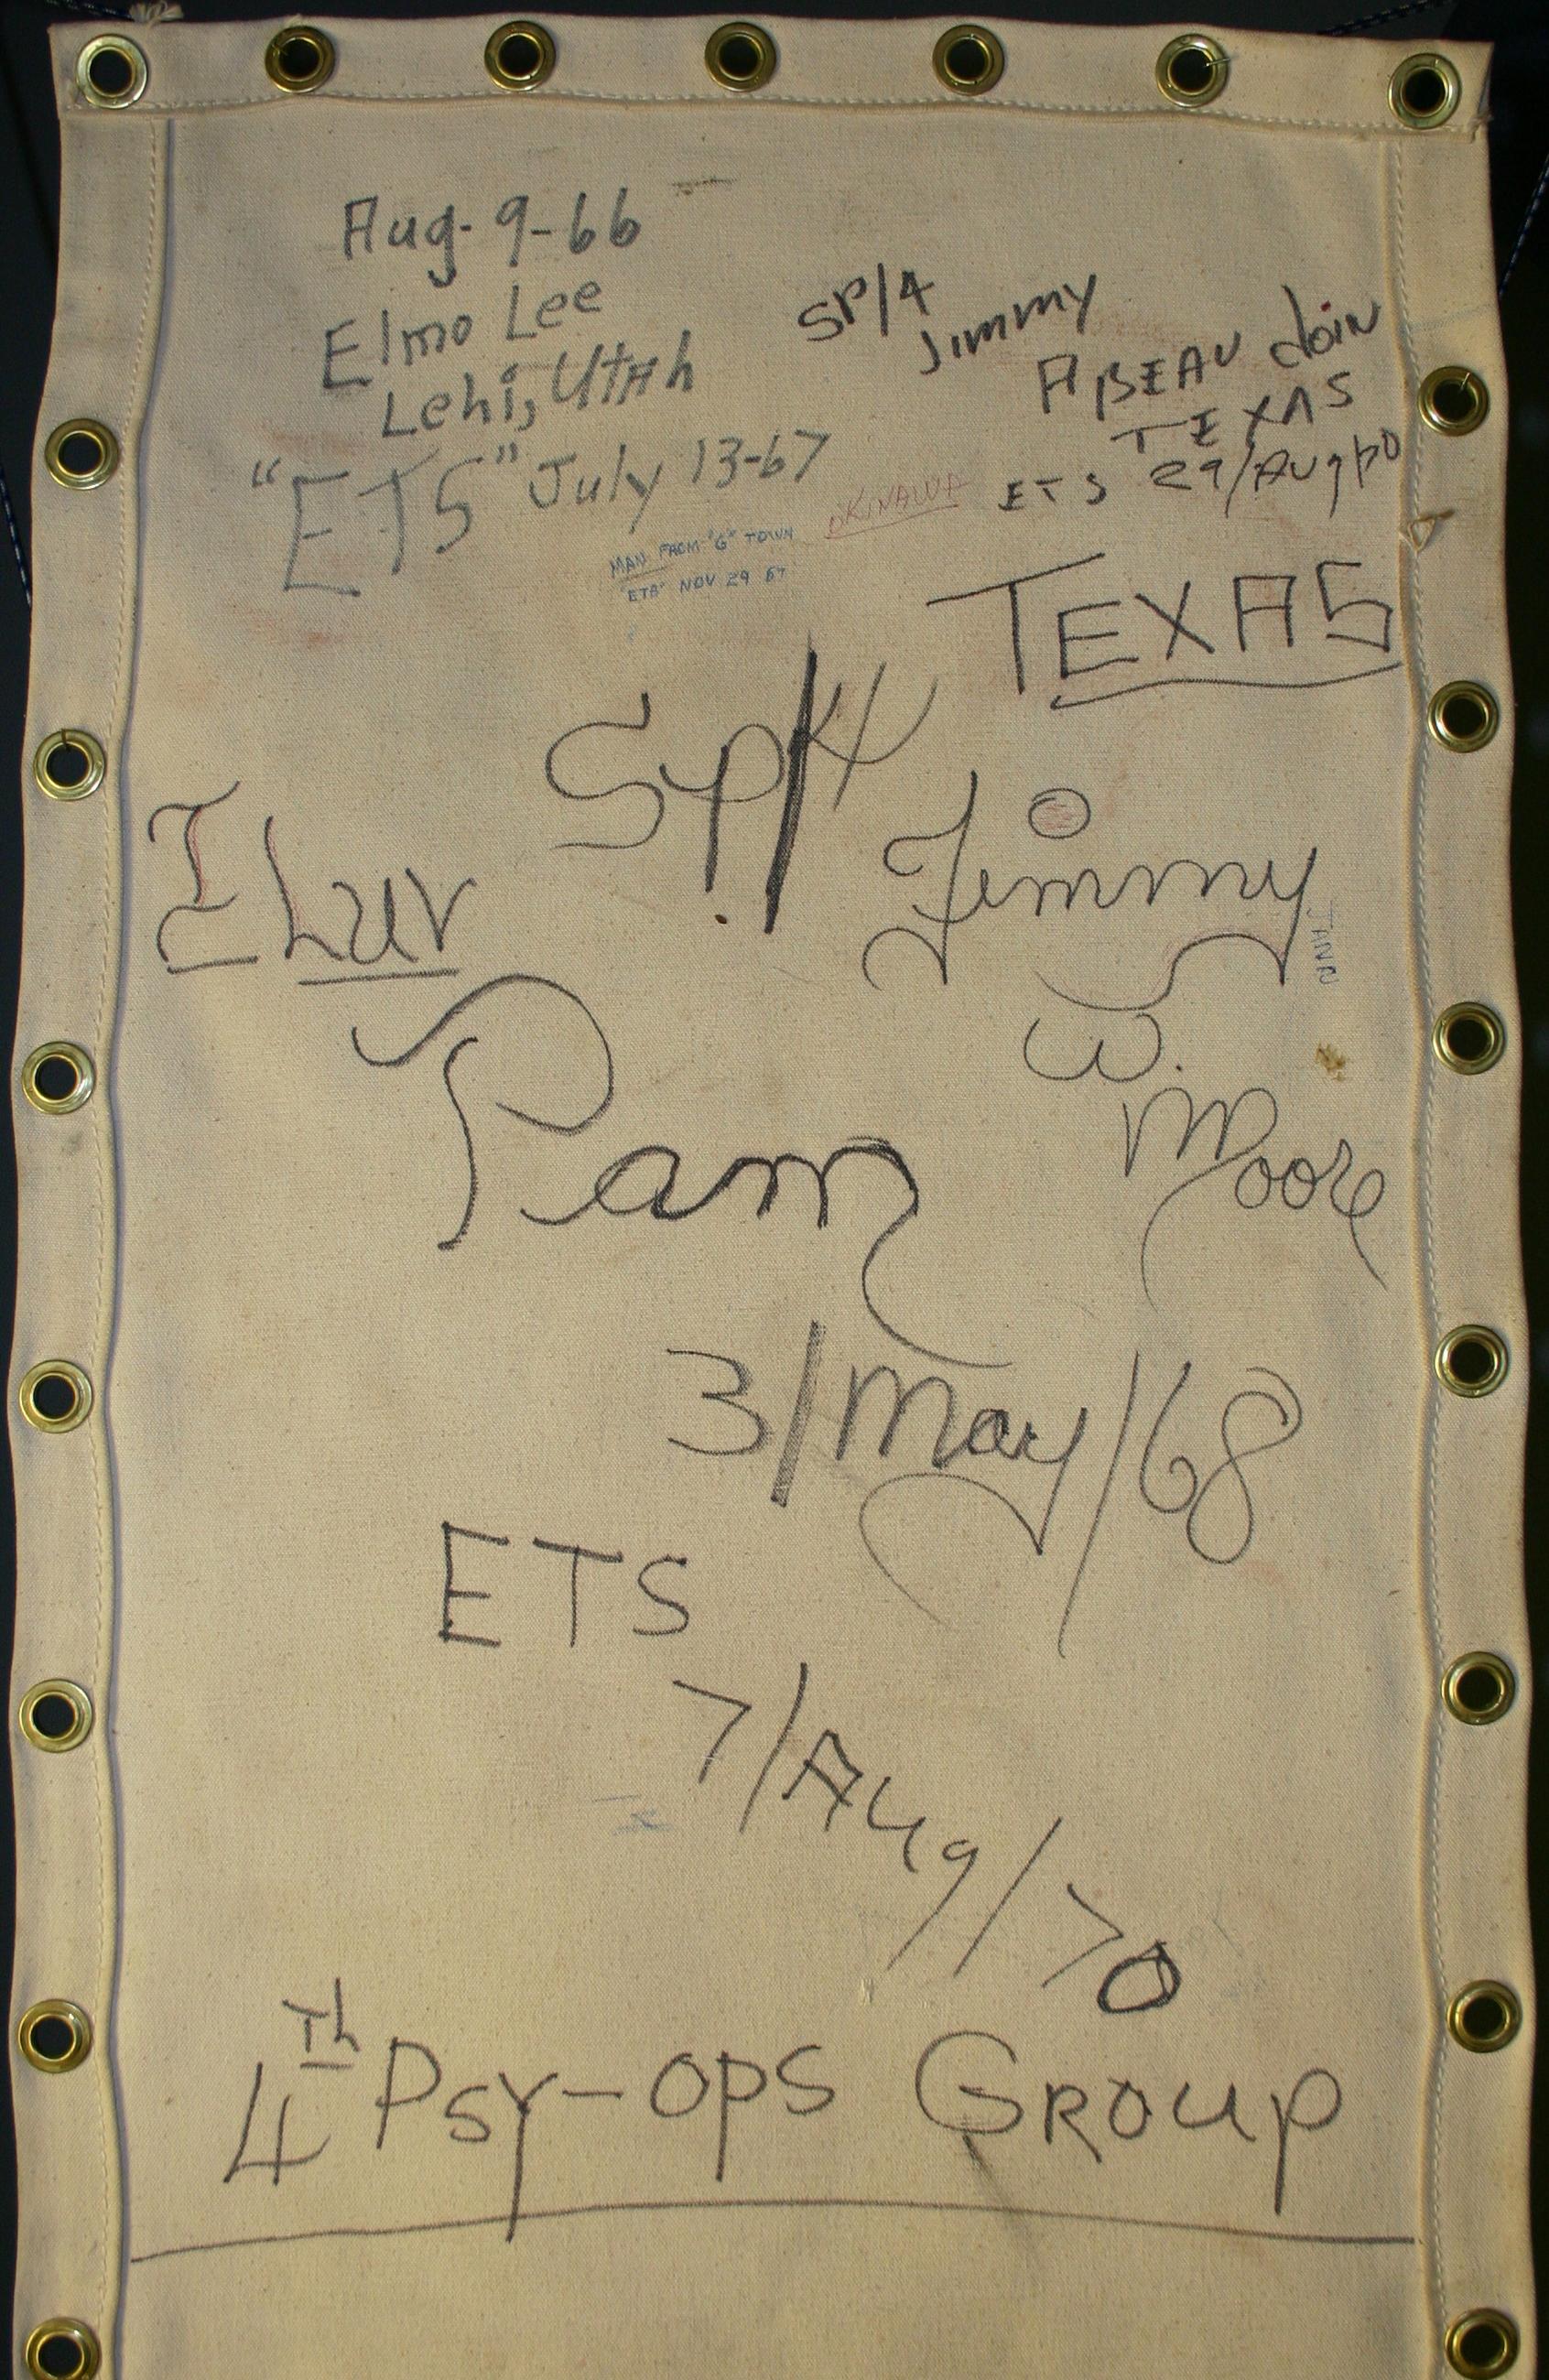 Aug. 9-66
Elmo Lee
Lehi, Utah
"ETS" July 13-67
SP/4
Jimmy
ABEAU
TEXAS
ETS 29/Aug
OKINAWA
MAN FROM "G" TOWN
NOV 29 67
TEXAS
Sp/4
Jimmy
W.
Moore
I Luv
Pam
3/May/68
ETS
7/Aug/70
4Th Psy-ops Group